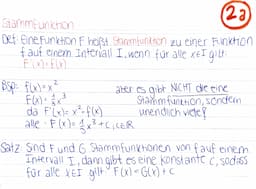 2a
Stammfunktion
Def: Eine Funktion F heißt Stammfunktion zu einer Funktion
f auf einem Intervall I, wenn für alle x∈I gilt:
F'(x)=f(x)
Bsp: f(x)=x² aber es gibt NICHT die eine
F(x)=⅓x³ Stammfunktion, sondern
da F'(x)=x²=f(x) unendlich viele!
alle F(x)=⅓x³+c, c∈ℝ
Satz: Sind F und G Stammfunktionen von f auf einem
Intervall I, dann gibt es eine Konstante c, sodass
für alle x∈I gilt F(x)=G(x)+c